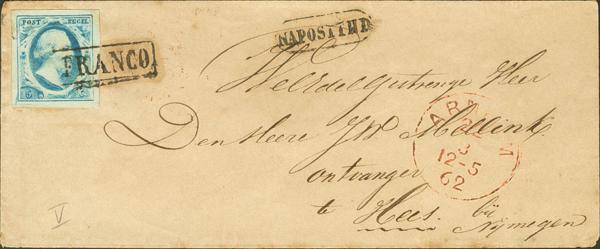 POST ZEGEL
FRANCO
NAPOSTTIJD
Weledelgestrenge Heer
Den Heere J.W. Mellink.
ontvanger
te Hees. bij
Nijmegen
AR
3
12-5
62
V